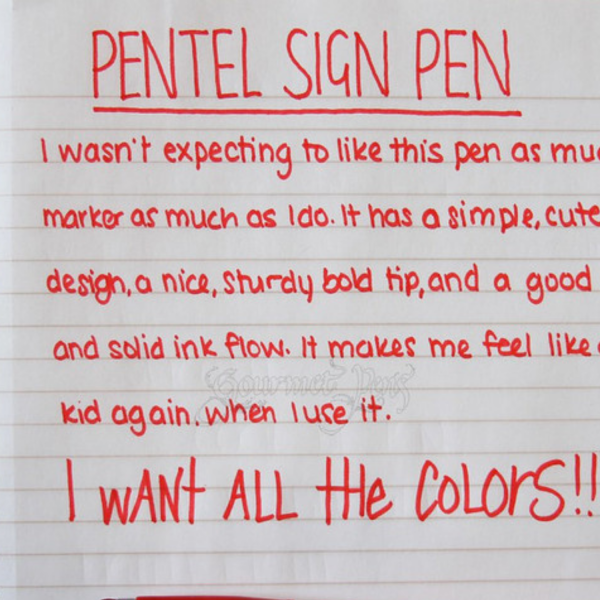 PENTEL SIGN PEN
I wasn't expecting to like this pen as muc
marker as much as I do. It has a simple, cute
design, a nice, sturdy bold tip, and a good
and solid ink flow. It makes me feel like
Gourmet Pens
kid again. when I use it.
I WANT ALL the COLORS!!